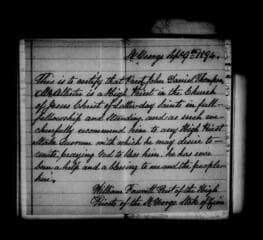 St George Sept 9th 1894.
This is to certify that Pres't John Daniel Thompson
McAllister is a High Priest in the Church
of Jesus Christ of Latter-day Saints in full
fellowship and standing and as such we
cheerfully recommend him to any High Priest
Stake Quorum with which he may desire to
unite, praying God to bless him, he has ever
been a help and a blessing to us and the people
here.
William Fawcett Pres't of the High
Priests of the St George Stake of Zion